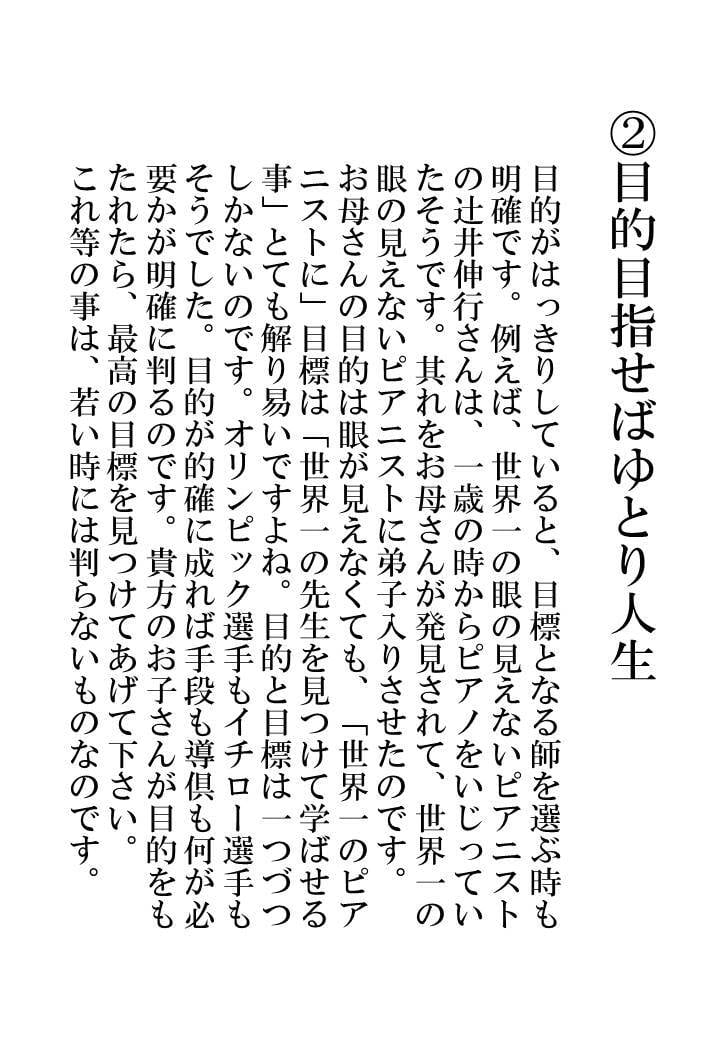 ②目的目指せばゆとり人生
目的がはっきりしていると、目標となる師を選ぶ時も
明確です。例えば、世界一の眼の見えないピアニスト
の辻井伸行さんは、一歳の時からピアノをいじってい
たそうです。其れをお母さんが発見されて、世界一の
眼の見えないピアニストに弟子入りさせたのです。
お母さんの目的は眼が見えなくても、「世界一のピア
ニストに」目標は「世界一の先生を見つけて学ばせる
事」とても解り易いですよね。目的と目標は一つづつ
しかないのです。オリンピック選手もイチロー選手も
そうでした。目的が的確に成れば手段も導倶も何が必
要かが明確に判るのです。貴方のお子さんが目的をも
たれたら、最高の目標を見つけてあげて下さい。
これ等の事は、若い時には判らないものなのです。